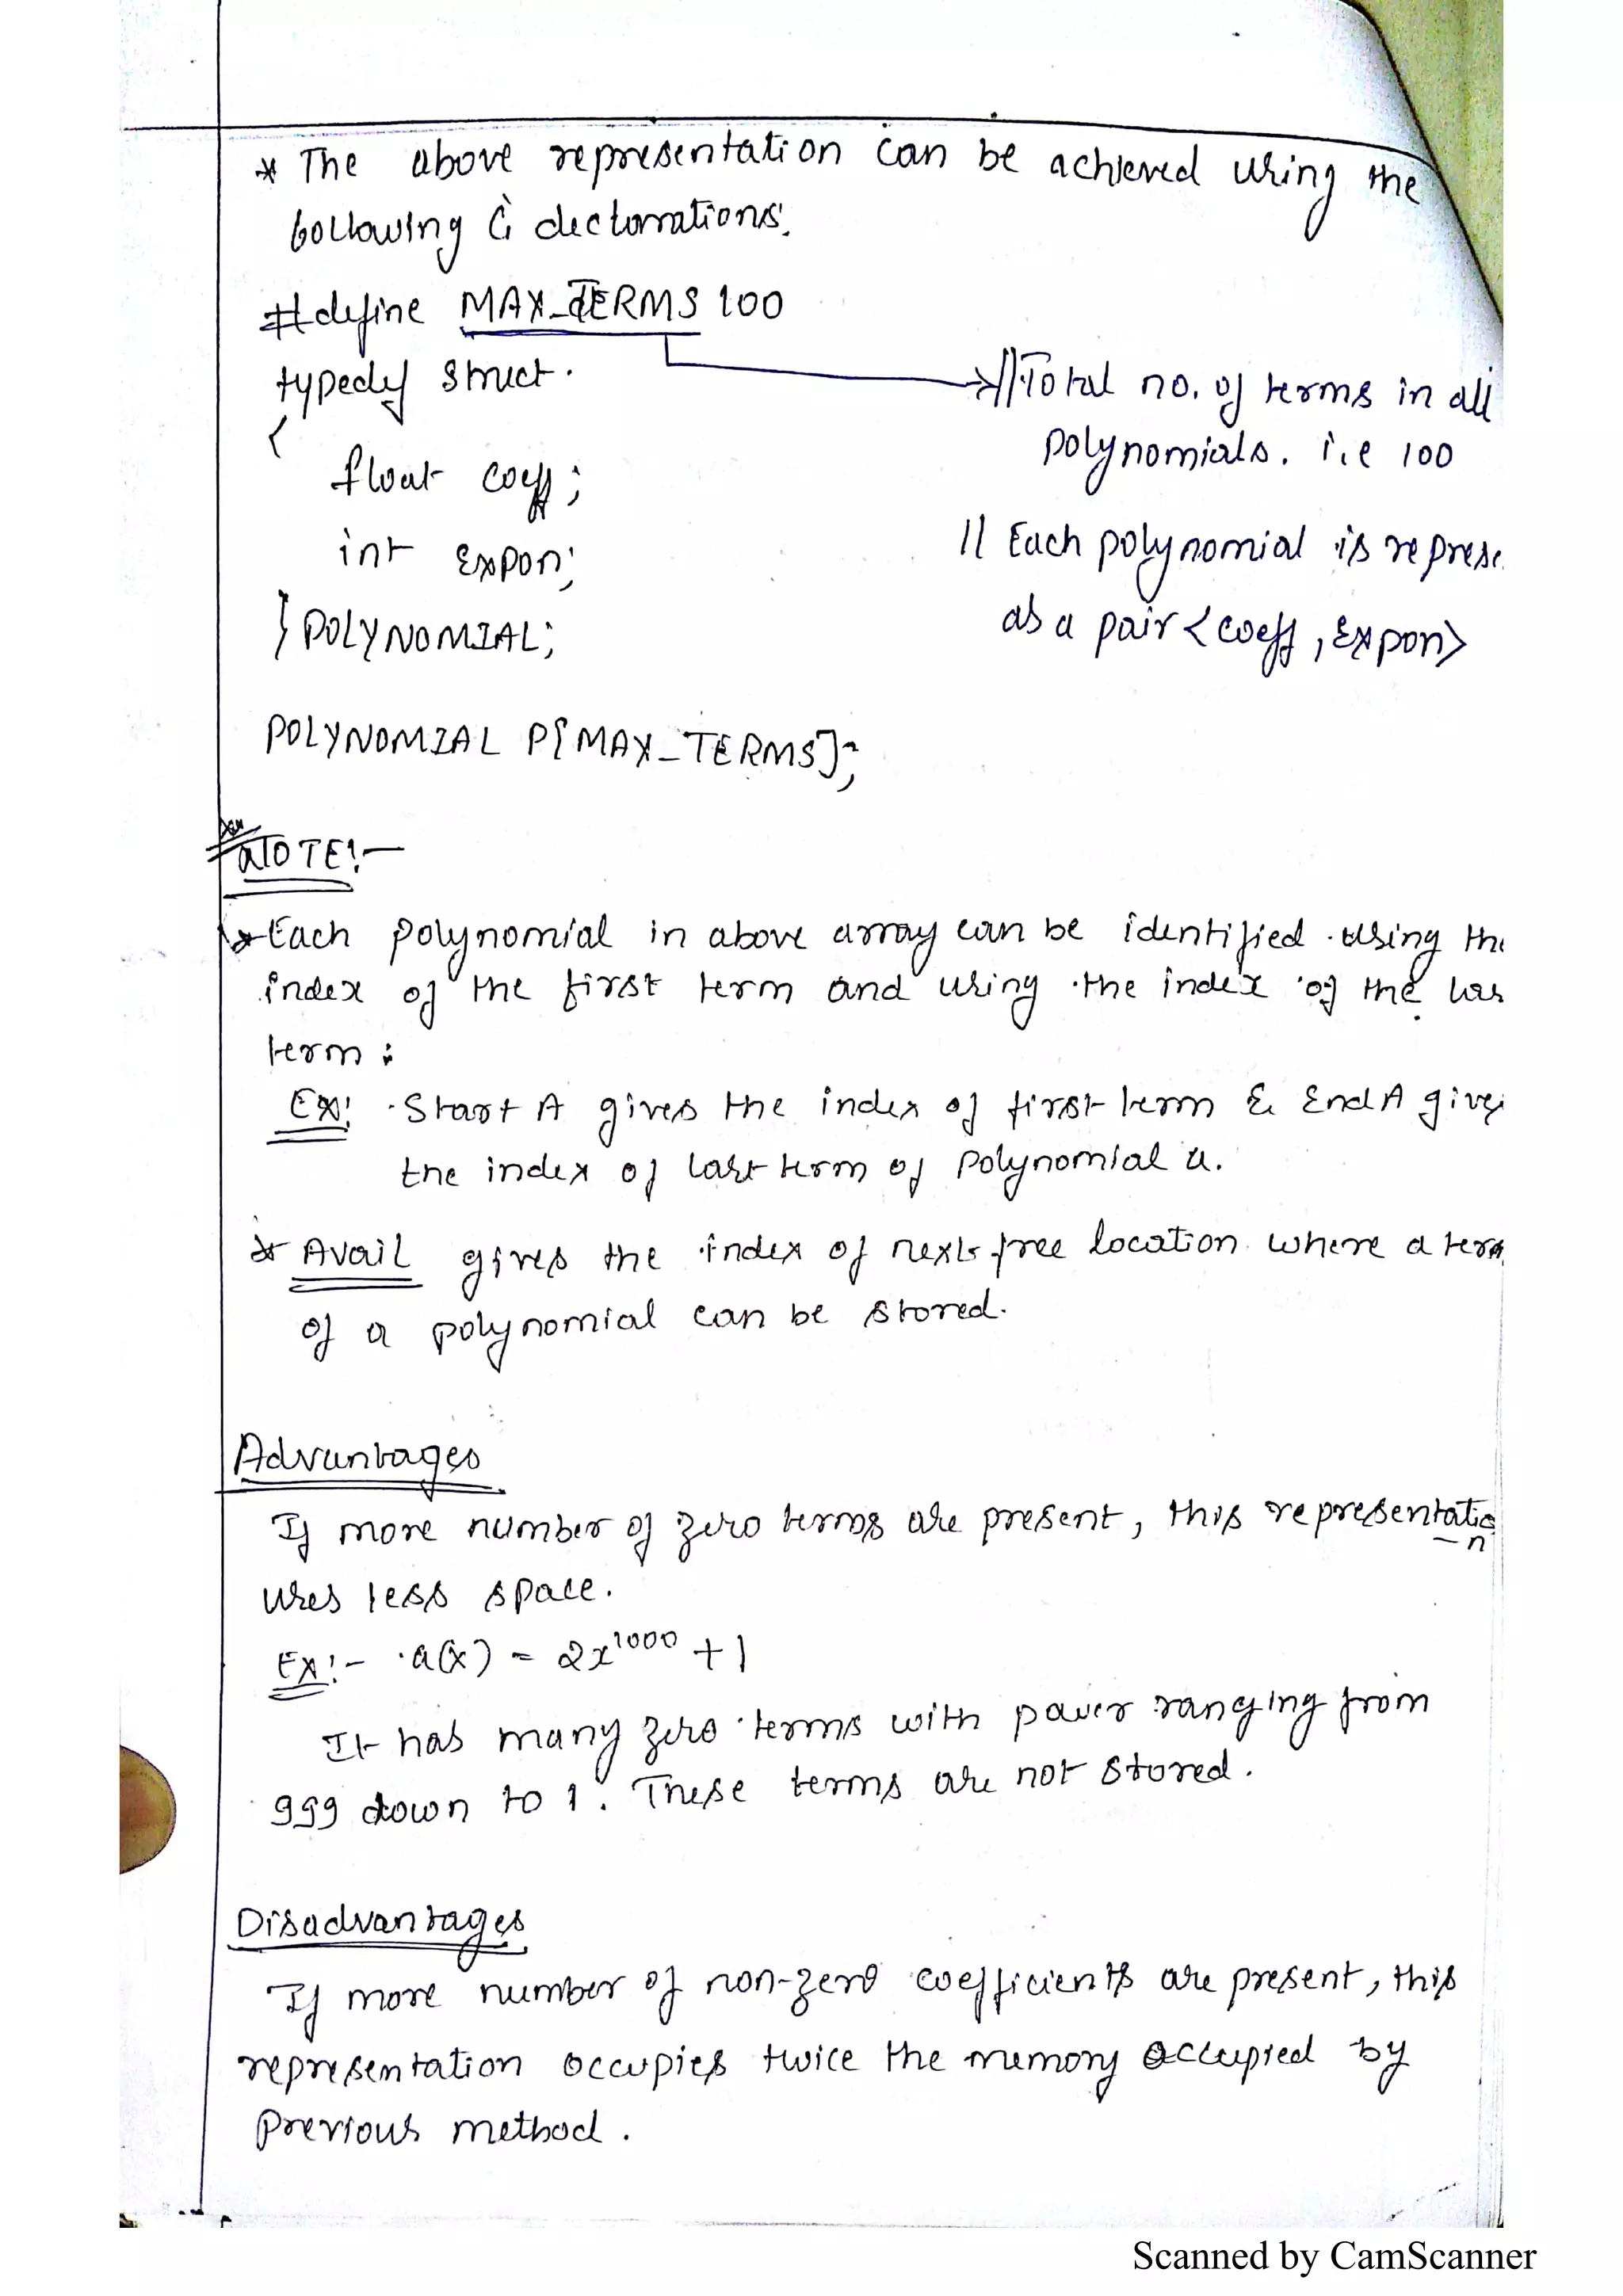 * The above representation can be achieved using the
following C declarations.
#define MAX_TERMS 100
typedef struct.
{
//Total no. of terms in all
polynomials. i.e 100
float coeff;
int expon;
// Each polynomial is repres
as a pair <coeff, expon>
} POLYNOMIAL;
POLYNOMIAL P[MAX_TERMS];
NOTE:-
* Each polynomial in above array can be identified using the
index of the first term and using the index of the las
term:
EX: Start A gives the index of first term & End A gives
the index of last term of Polynomial a.
* Avail gives the index of next free location where a term
of a polynomial can be stored.
Advantages
If more number of zero terms are present, this representatio
-n
uses less space.
EX:- a(x) = 2x¹⁰⁰⁰ + 1
It has many zero terms with power ranging from
999 down to 1. These terms are not stored.
Disadvantages
If more number of non-zero coefficients are present, this
representation occupies twice the memory occupied by
Previous method.
Scanned by CamScanner